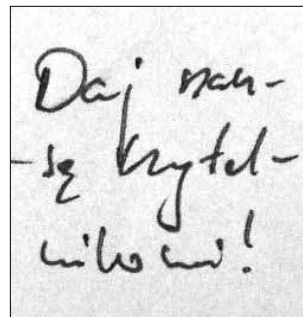 Daj szan-
-sę czytel-
nikowi!